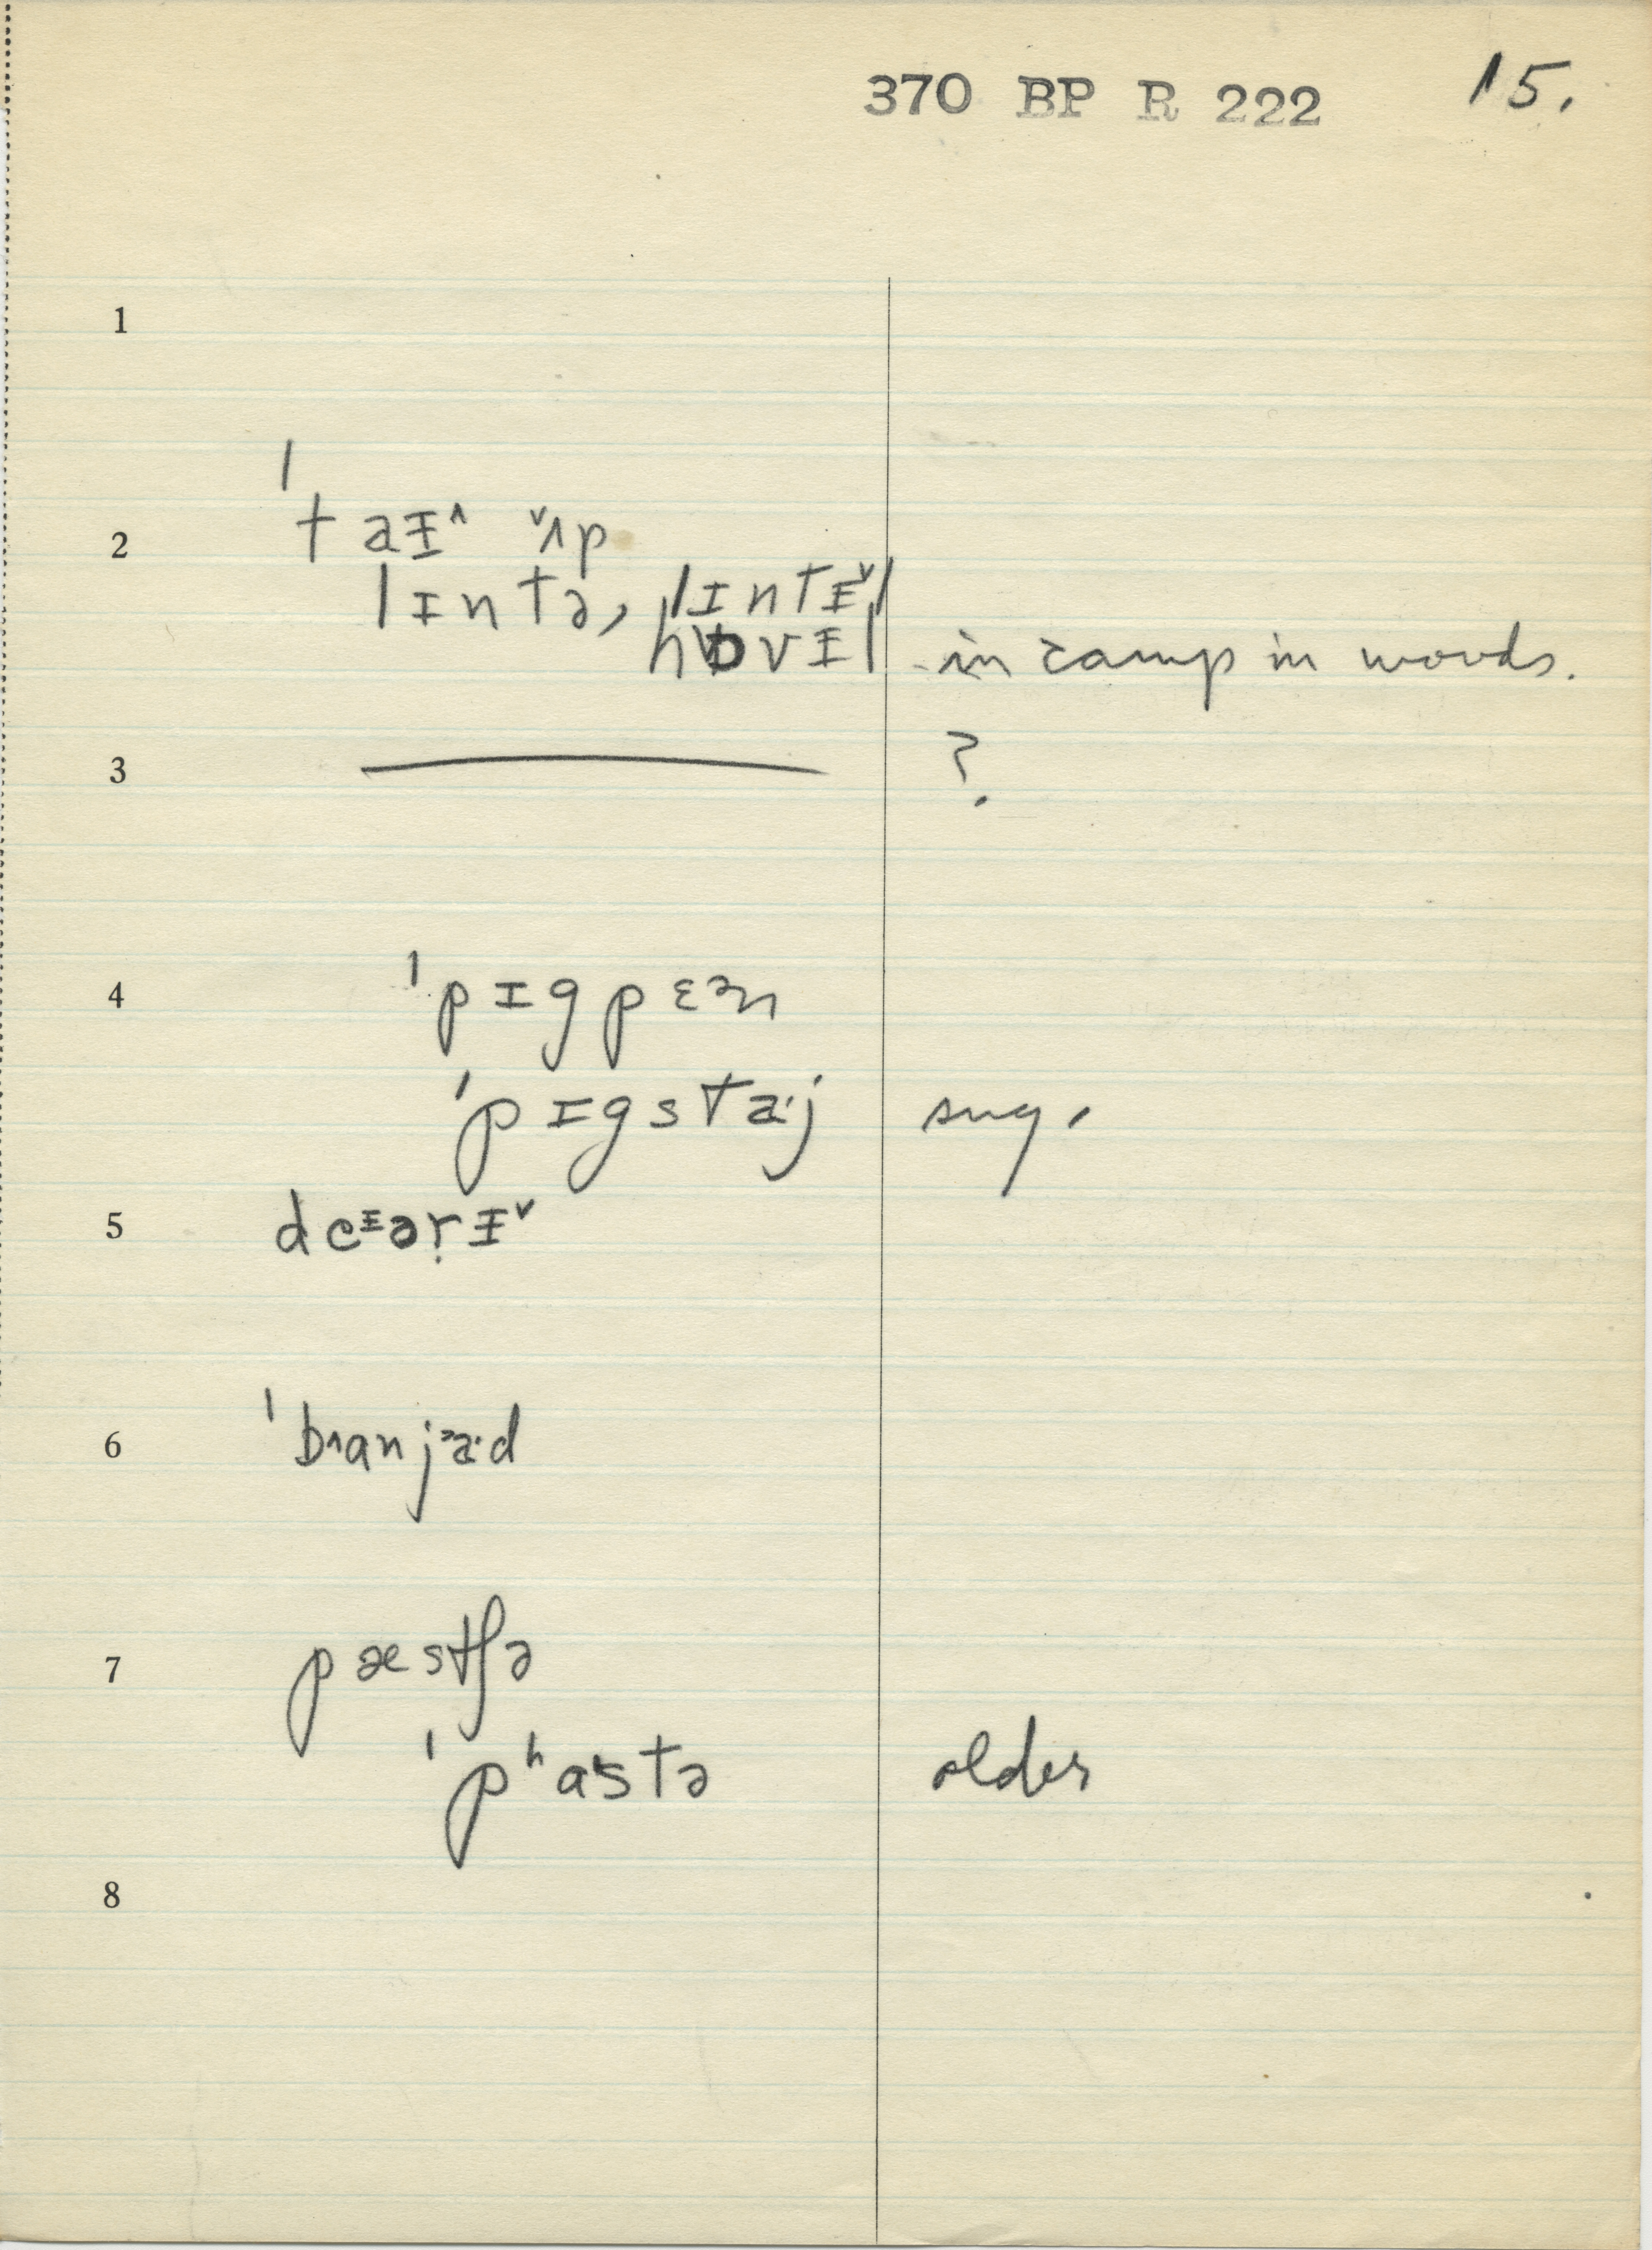 370 BP R 222 15.
1
2 ˈtaɪ^ ˅ʌp
lɪntə, lɪntɪ˅l
hɒvɪl in camp in woods.
3 ——— ?
4 ˈpɪgpɛᵊn
ˈpɪgstaˑj sug.
5 deᶦəṛɪ˅
6 ˈbɹanjᵊaˑd
7 pæstʃə
ˈpʰastə older
8